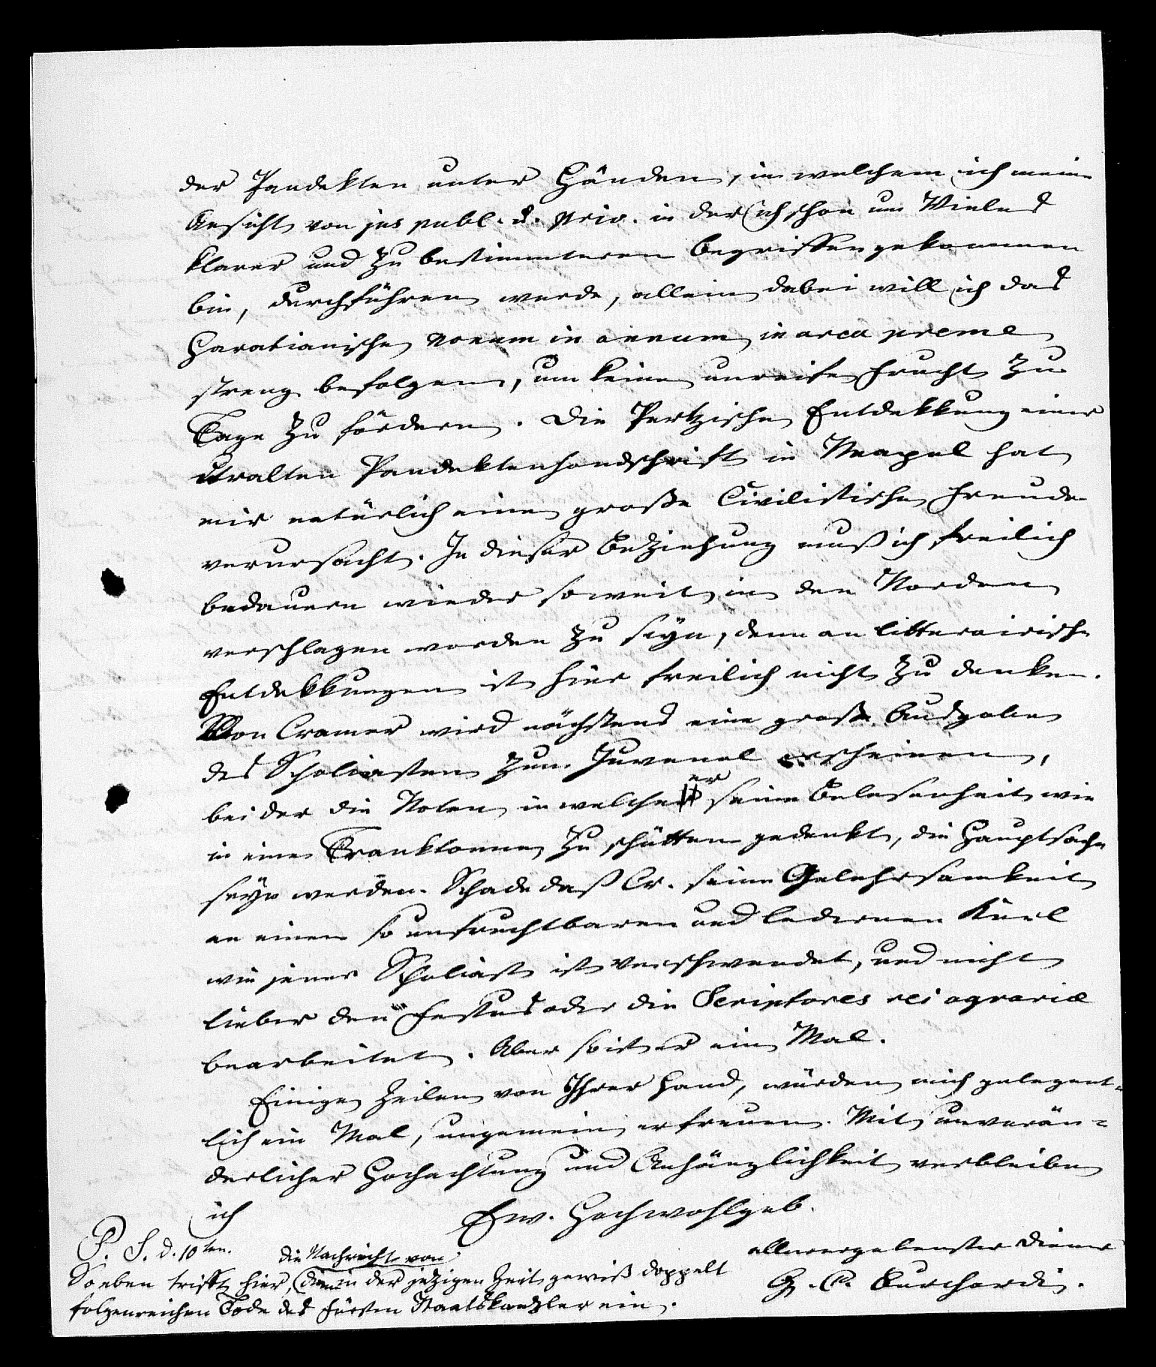 der Pandekten unter Händen, in welchem ich meine
Ansicht von jus publ. & priv. in der ich schon um Vieles
klarer und zu bestimmteren Begriffen gekommen
bin, durchführen werde, allein dabei will ich das
Horatianische nonum in annum in arca preme
streng befolgen, um keine unreife Frucht zu
Tage zu fördern. Die Pertzische Entdekkung einer
uralten Pandektenhandschrift in Neapel hat
mir natürlich eine große Civilistische Freude
verursacht. In dieser Beziehung muß ich freilich
bedauern wieder soweit in den Norden
verschlagen worden zu seyn, denn an litterairische
Entdekkungen ist hier freilich nicht zu denken.
Von Cramer wird nächstens eine große Ausgabe
des Scholiasten zum Juvenal erscheinen,
bei der die Noten, in welche er seine Belesenheit wie
in eine Tranktonne zu schütten gedenkt, die Hauptsache
seyn werden. Schade daß Cr. seine Gelehrsamkeit
an einen so unfruchtbaren und ledernen Kerl
wie jener Scholiast ist verschwendet, und nicht
lieber den Festus oder die Scriptores rei agrariæ
bearbeitet. Aber so ist er ein Mal.
Einige Zeilen von Ihrer Hand, würden mich gelegent-
lich ein Mal, ungemein erfreuen. Mit unverän-
derlicher Hochachtung und Anhänglichkeit verbleibe
ich
Ew. Hochwohlgeb.
allerergebenster Diener
G. C. Burchardi.
P. S. d. 10ten.
die Nachricht von
Soeben trifft hier, dem in der jetzigen Zeit gewiß doppelt
folgenreichen Tode des Fürsten Staatskanzler ein.